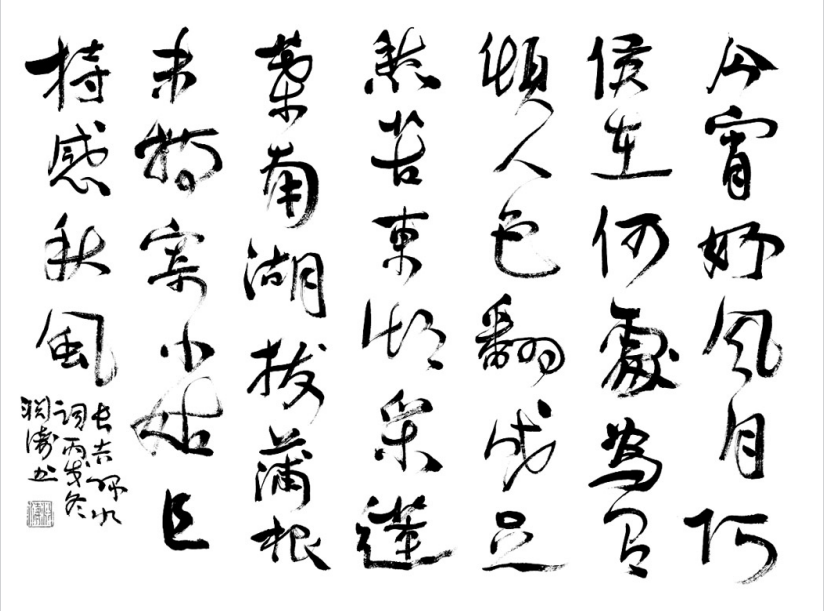 今宵好风月阿
侯在何處為有
傾人色翻成足
愁苦東湖采蓮
葉南湖拔蒲根
未持寄小姑且
持感秋風
長吉綠水
詞丙戌冬
书